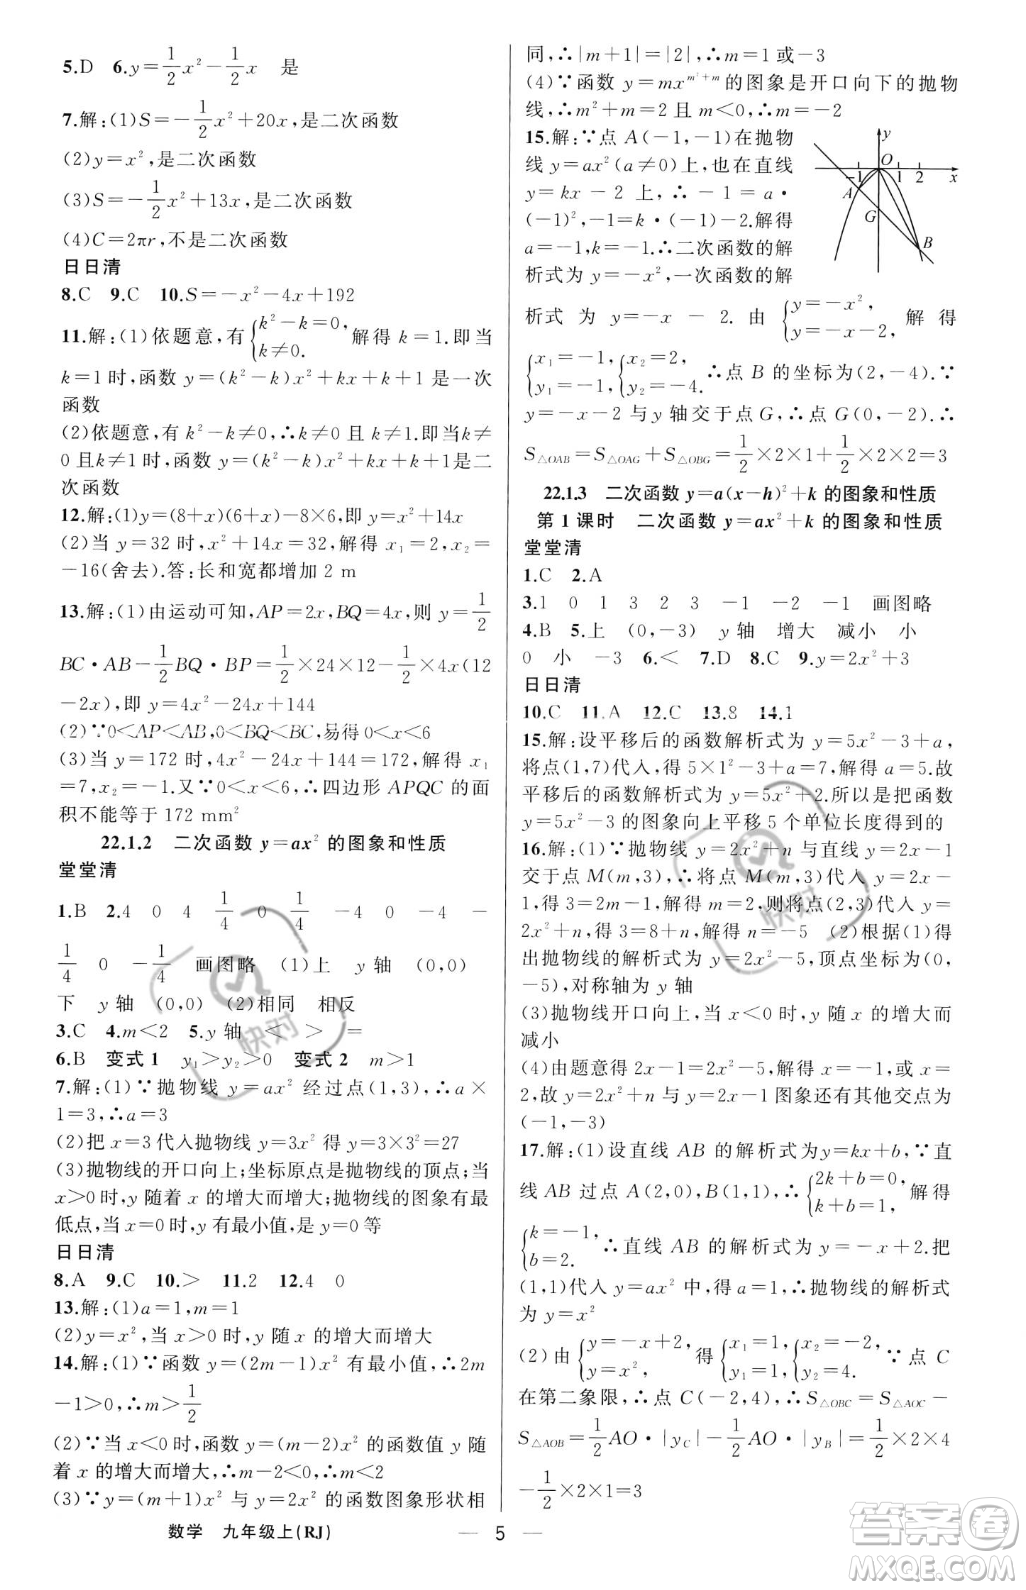 5.D 6.y=1/2x²-1/2x 是
7.解:(1)S=-1/2x²+20x,是二次函数
(2)y=x²,是二次函数
(3)S=-1/2x²+13x,是二次函数
(4)C=2πr,不是二次函数
日日清
8.C 9.C 10.S=-x²-4x+192
11.解:(1)依题意,有{k²-k=0, k≠0. 解得 k=1.即当
k=1时,函数 y=(k²-k)x²+kx+k+1是一次
函数
(2)依题意,有 k²-k≠0,∴k≠0且k≠1.即当k≠
0且k≠1时,函数 y=(k²-k)x²+kx+k+1是二
次函数
12.解:(1)y=(8+x)(6+x)-8×6=x²+14x
(2)当 y=32 时,x²+14x=32.解得 x₁=2,x₂=
-16(舍去).答:长和宽都增加 2 m
13.解:(1)由运动可知,AP=2x,BQ=4x,则 y=1/2
BC·AB-1/2BQ·BP=1/2×24×12-1/2×4x(12
-2x),即 y=4x²-24x+144
(2)∵0<AP<AB,0<BQ<BC,易得 0<x<6
(3)当 y=172 时,4x²-24x+144=172.解得 x₁
=7,x₂=-1.又∵0<x<6,∴四边形 APQC 的面
积不能等于 172 mm²
22.1.2 二次函数 y=ax² 的图象和性质
堂堂清
1.B 2.4 0 4 1/4 0 1/4 -4 0 -4 -
1/4 0 -1/4 画图略 (1)上 y 轴 (0,0)
下 y 轴 (0,0) (2)相同 相反
3.C 4.m<2 5.y 轴 < > =
6.B 变式 1 y₁>y₂>0 变式 2 m>1
7.解:(1)∵抛物线 y=ax² 经过点(1,3),∴a×
1=3,∴a=3
(2)把 x=3代入抛物线 y=3x² 得 y=3×3²=27
(3)抛物线的开口向上;坐标原点是抛物线的顶点;当
x>0时,y 随着 x 的增大而增大;抛物线的图象有最
低点,当 x=0 时,y 有最小值,是 y=0 等
日日清
8.A 9.C 10.> 11.2 12.4 0
13.解:(1)a=1,m=1
(2)y=x²,当 x>0 时,y 随 x 的增大而增大
14.解:(1)∵函数 y=(2m-1)x² 有最小值,∴2m
-1>0,∴m>1/2
(2)∵当 x<0 时,函数 y=(m-2)x² 的函数值 y 随
着 x 的增大而增大,∴m-2<0,∴m<2
(3)∵y=(m+1)x² 与 y=2x² 的函数图象形状相
数学 九年级上(RJ)
5
同,∴|m+1|=|2|,∴m=1或-3
(4)∵函数 y=mx^(m²+m) 的图象是开口向下的抛物
线,∴m²+m=2且 m<0,∴m=-2
15.解:∵点 A(-1,-1)在抛物
线 y=ax²(a≠0)上,也在直线
y=kx-2上,∴-1=a·
(-1)²,-1=-k-2.解得
a=-1,k=-1.二次函数的解
析式为 y=-x²,一次函数的解
析式为 y=-x-2.由{y=-x², y=-x-2, 解得
{x₁=-1, y₁=-1, {x₂=2, y₂=-4. ∴点 B 的坐标为(2,-4).∵
y=-x-2与y轴交于点G,∴点 G(0,-2).∴
S△OAB=S△OAG+S△OBG=1/2×2×1+1/2×2×2=3
y
O
-1
1 2
x
A
G
B
22.1.3 二次函数 y=a(x-h)²+k 的图象和性质
第 1 课时 二次函数 y=ax²+k 的图象和性质
堂堂清
1.C 2.A
3.1 0 1 3 2 3 -1 -2 -1 画图略
4.B 5.上 (0,-3) y 轴 增大 减小 小
0 小 -3 6.< 7.D 8.C 9.y=2x²+3
日日清
10.C 11.A 12.C 13.8 14.1
15.解:设平移后的函数解析式为 y=5x²-3+a,
将点(1,7)代入,得 5×1²-3+a=7.解得 a=5.故
平移后的函数解析式为 y=5x²+2.所以是把函数
y=5x²-3 的图象向上平移 5 个单位长度得到的
16.解:(1)∵抛物线 y=2x²+n 与直线 y=2x-1
交于点 M(m,3),∴将点 M(m,3)代入 y=2x-
1,得 3=2m-1.解得 m=2.则将点(2,3)代入 y=
2x²+n,得 3=8+n,∴n=-5 (2)根据(1)中得
出抛物线的解析式为 y=2x²-5,顶点坐标为(0,
-5),对称轴为 y 轴
(3)抛物线开口向上,当 x<0 时,y 随 x 的增大而
减小
(4)由题意得 2x-1=2x²-5.解得 x=-1 或 x=
2,故 y=2x²+n 与 y=2x-1 图象还有其他交点为
(-1,-3)
17.解:(1)设直线 AB 的解析式为 y=kx+b,∵直
线 AB 过点 A(2,0),B(1,1),∴{2k+b=0, k+b=1. 解得
{k=-1, b=2. ∴直线 AB 的解析式为 y=-x+2.把
(1,1)代入 y=ax² 得 a=1,∴抛物线的解析式
为 y=x²
(2)由{y=-x+2, y=x², 得{x₁=1, y₁=1, {x₂=-2, y₂=4. ∵点 C
在第二象限,∴点 C(-2,4),∴S△OBC=S△AOC-
S△AOB=1/2AO·|yC|-1/2AO·|yB|=1/2×2×4
-1/2×2×1=3
快对
快对
答案圈
MXQE.COM